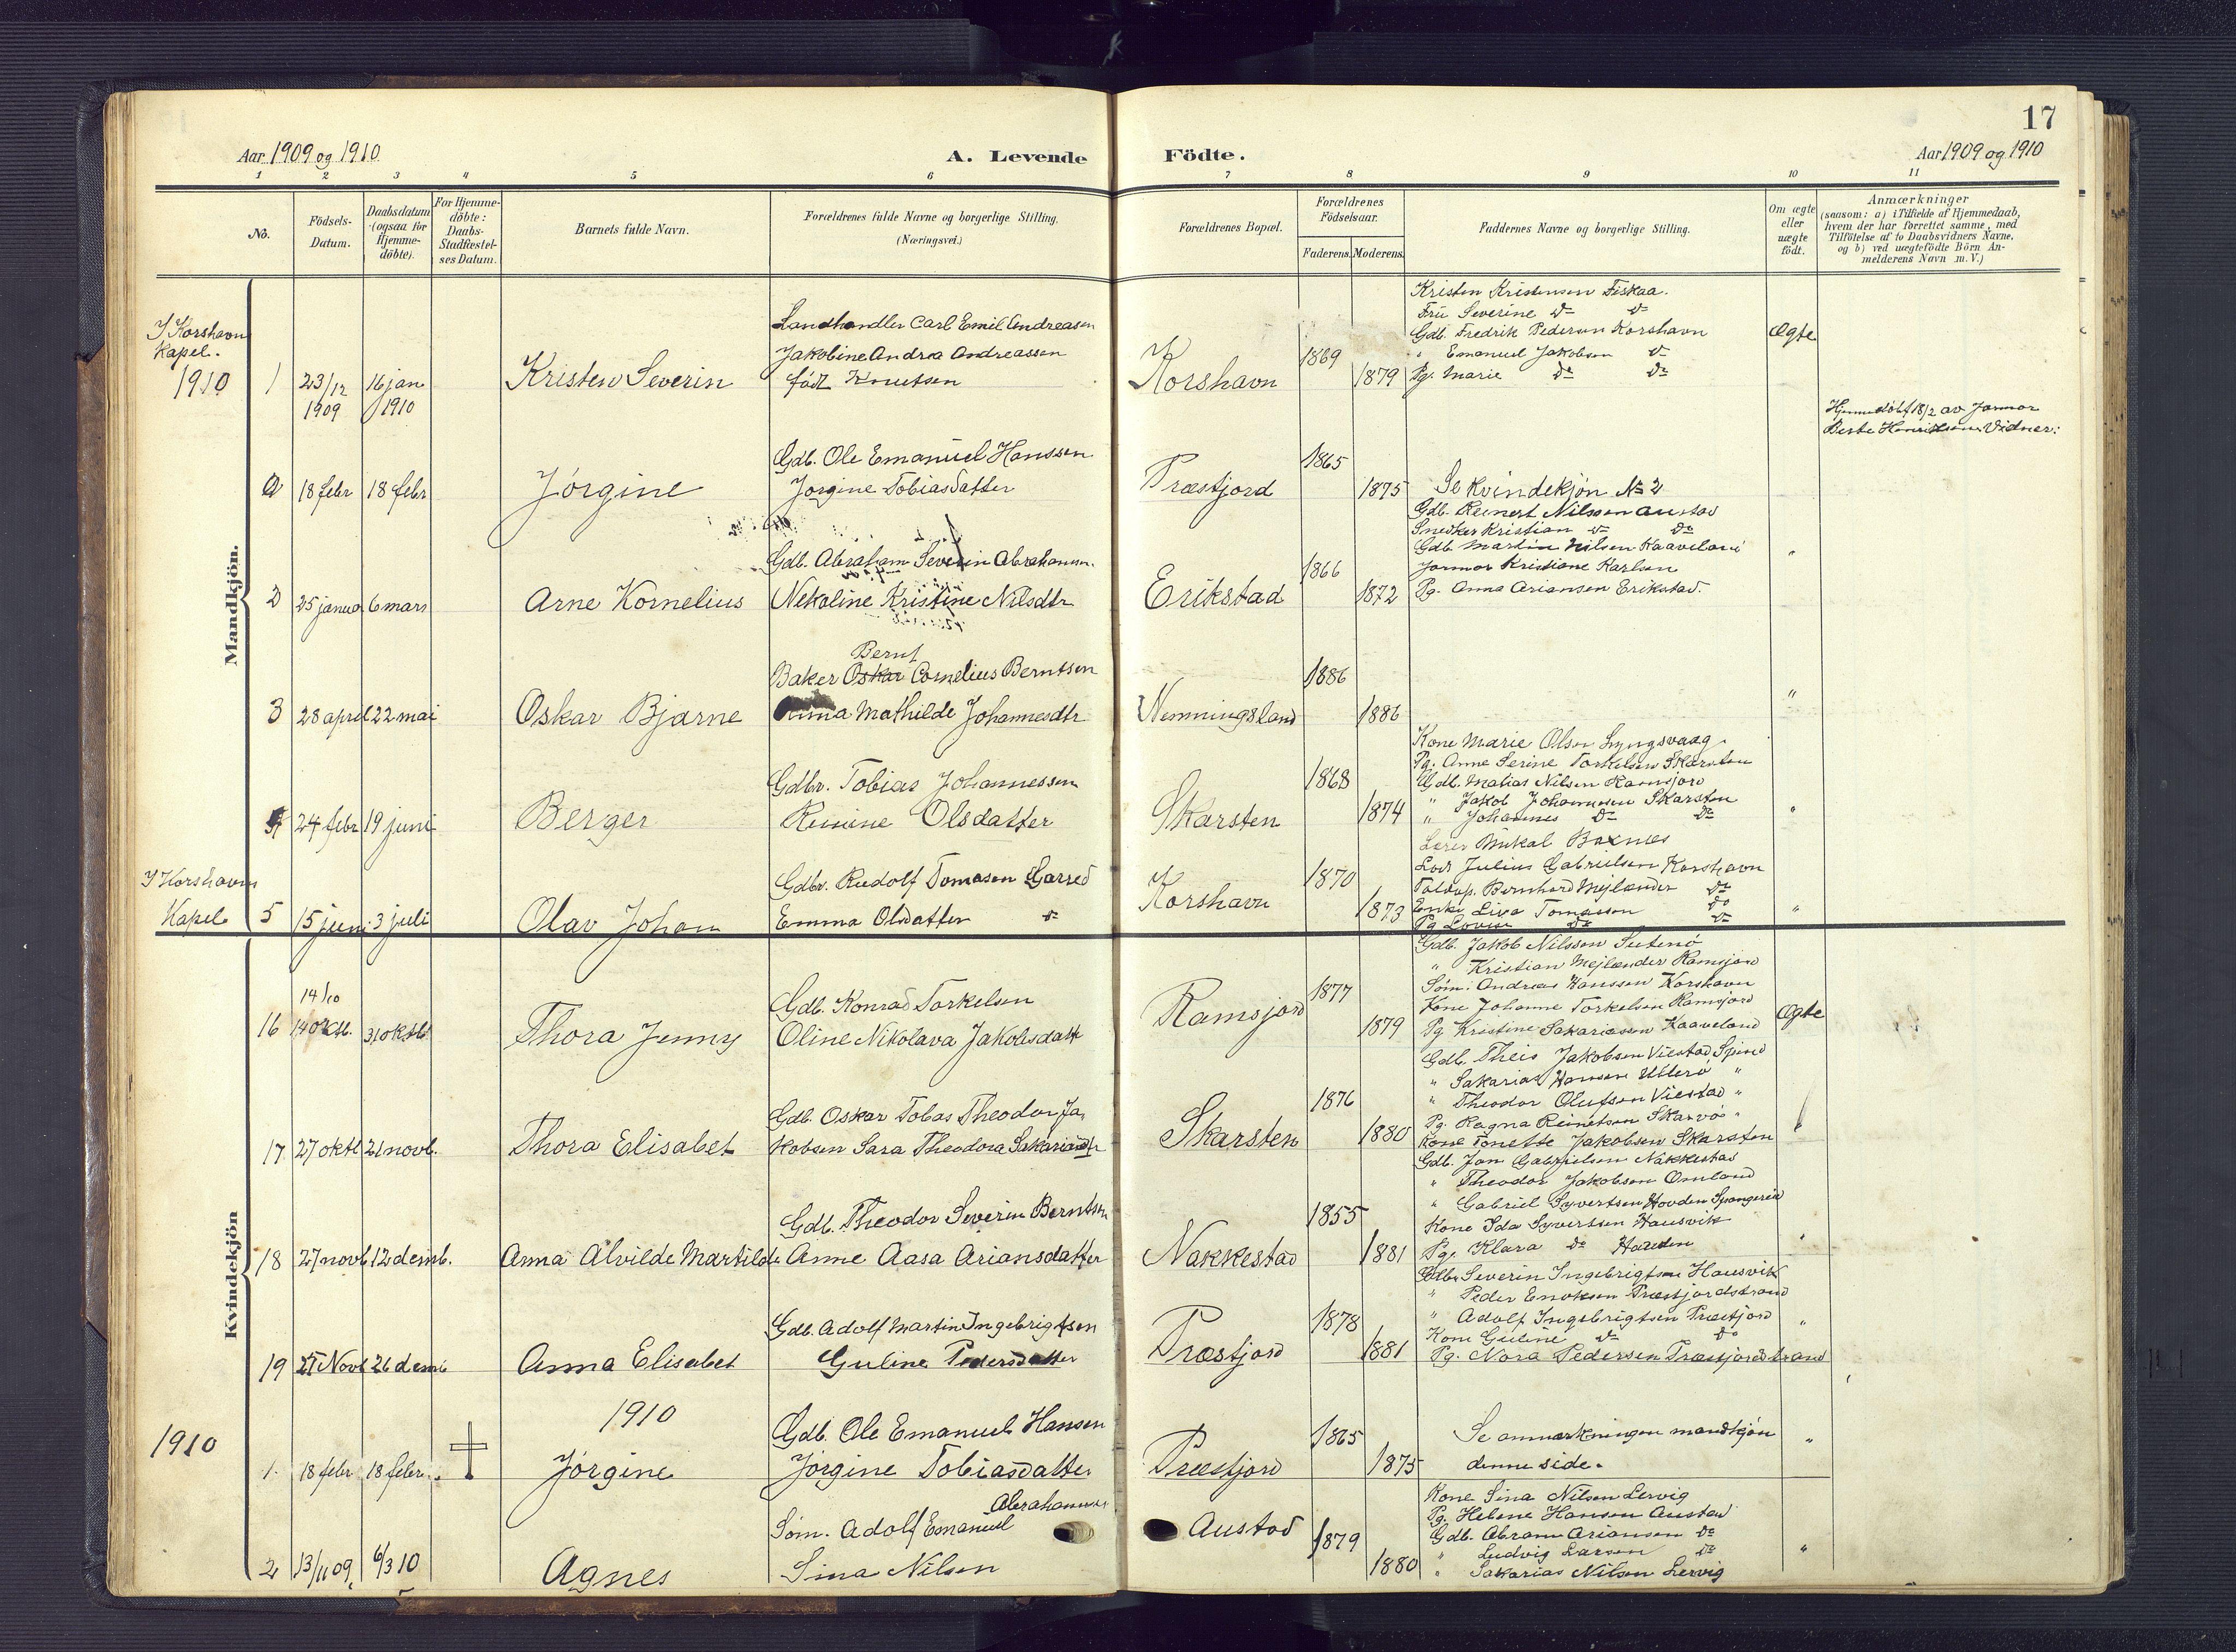 17
Aar 1909 og 1910
A. Levende Födte.
Aar 1909 og 1910
1 2 3 4 5 6 7 8 9 10 11
No.
Födsels-
Datum.
Daabsdatum
(ogsaa for
Hjemme-
döbte).
For Hjemme-
döbte:
Daabs-
Stadfæstel-
ses Datum.
Barnets fulde Navn.
Forældrenes fulde Navne og borgerlige Stilling.
(Næringsvei.)
Forældrenes Bopæl.
Forældrenes
Födselsaar.
Faderens. Moderens.
Faddernes Navne og borgerlige Stilling.
Om ægte
eller
uægte
födt.
Anmærkninger
(saasom: a) i Tilfælde af Hjemmedaab,
hvem der har forrettet samme, med
Tilföielse af to Daabsvidners Navne,
og b) ved uægtefödte Börn An-
melderens Navn m. V.)
Mandkjön.
I Korshavn
Kapel.
1910
1 23/12 16 jan
1909 1910
Kristen Severin
Landhandler Carl Emil Andreasen
Jakobine Andrea Andreassen
född Knutsen
Korshavn
1869
1879
Kristen Kristensen Fiskaa.
Fru Severine do do
Gdb. Fredrik Pedersen Korshavn
" Emanuel Jakobsen do
Pg. Marie do do
Ægte
18 febr 18 febr
Jörgine
Gdb. Ole Emanuel Hanssen
Jorgine Tobiasdatter
Præstjord
1865
1875
Se Kvindekjön No 2
Hjemmedöbt 18/2 av Jormor
Vidner:
2 25 janua 6 mars
Arne Kornelius
Gdb. Abraham Severin Abrahamsn.
Nekoline Kristine Nilsdtr
Erikstad
1866
1872
Gdb. Reinert Nilsson Austad
Snedker Kristian do do
Gdb Martin Nilsen Kaaveland
Jormor Kristiane Karlsen
Pg. Anna Ariansen Erikstad.
"
3 28 april 22 mai
Oskar Bjarne
Bernt
Baker Oskar Cornelius Berntsen
Anna Mathilde Johannesdtr
Nemningsland
1886
1886
"
4 24 febr 19 juni
Berger
Gdbr. Tobias Johannessen
Reinine Olsdatter
Skarsten
1868
1874
Kone Marie Olsen Lyngsvaag.
Pg. Anne Serine Torkelsen Skarsten
Gdb. Matias Nilsen Ramsjord
" Jakob Johannesen Skarsten
" Johannes do do
"
I Korshavn
Kapel
5 15 juni 3 juli
Olav Johan
Gdbr. Rudolf Tomasen Garred
Emma Olsdatter do
Korshavn
1870
1873
Lærer Mikal Boxnes
Lods Julius Gabrielsen Korshavn
Toldop. Bernhard Mejlænder do
Enke Liva Tomasson do
Pg Lovise do do
"
Kvindekjön
14/10
16 14 oktb. 31 oktb.
Thora Jenny
Gdb. Konrad Torkelsen
Oline Nikolava Jakobsdatt
Ramsjord
1877
1879
Gdb. Jakob Nilsson
" Kristian Mejlænder Ramsjord
Söm: Andreas Hanssen Korshavn
Kone Johanne Torkelsen Ramsjord
Pg Kristine Sakariasen Kaaveland
Ægte
17 27 oktb 21 novb.
Thora Elisabet
Gdb. Oskar Tobas Theodor Ja
kobsen Sara Theodora Sakariasdtr
Skarsten
1876
1880
Gdb. Theis Jakobsen Viestad, Spind
" Sakarias Hansen Utterö "
" Theodor Olufsen Viestad "
Pg. Ragna Reinertsen Skarvö "
Kone Tonette Jakobsen Skarsten
18 27 novb 12 desemb.
Anna Alvilde Martilde
Gdb. Theodor Severin Berntsen
Anne Aasa Ariansdatter
Nakkestad
1855
1881
Gdb. Jan Gabrielsen Nakkestad
" Theodor Jakobson Omland
" Gabriel Syvertsen Hovden Spangereid
Kone Ida Syvertsen Hausvik
Pg. Klara do Houden
"
19 27 Novb 26 desemb
Anna Elisabet
Gdb. Adolf Martin Ingebrigtsen
Guline Pedersdatter
Præstjord
1878
1881
Gdb. Severin Ingebrigtsen Hausvik
" Peder Enoksen Præstjordstrand
" Adolf Ingebrigtsen Præstjord
Kone Guline do do
Pg. Nora Pedersen Præstjordstrand
"
1910
1910
1. 18 febr 18 febr.
Jörgine
Gdb. Ole Emanuel Hansen
Jörgine Tobiasdatter
Præstjord
1865
1875
Se anmærkningen mandkjön
denne side.
"
2 13/11 09. 6/3 10
Agnes
Abrahamsen
Söm. Adolf Emanuel
Sina Nilsen
Austad
1879
1880
Kone Sina Nilsen Lervig
Pg. Helene Hansen Austad
Gdb. Abram Ariansen do
" Ludvig Larsen do
" Sakarias Nilsen Lervig
"